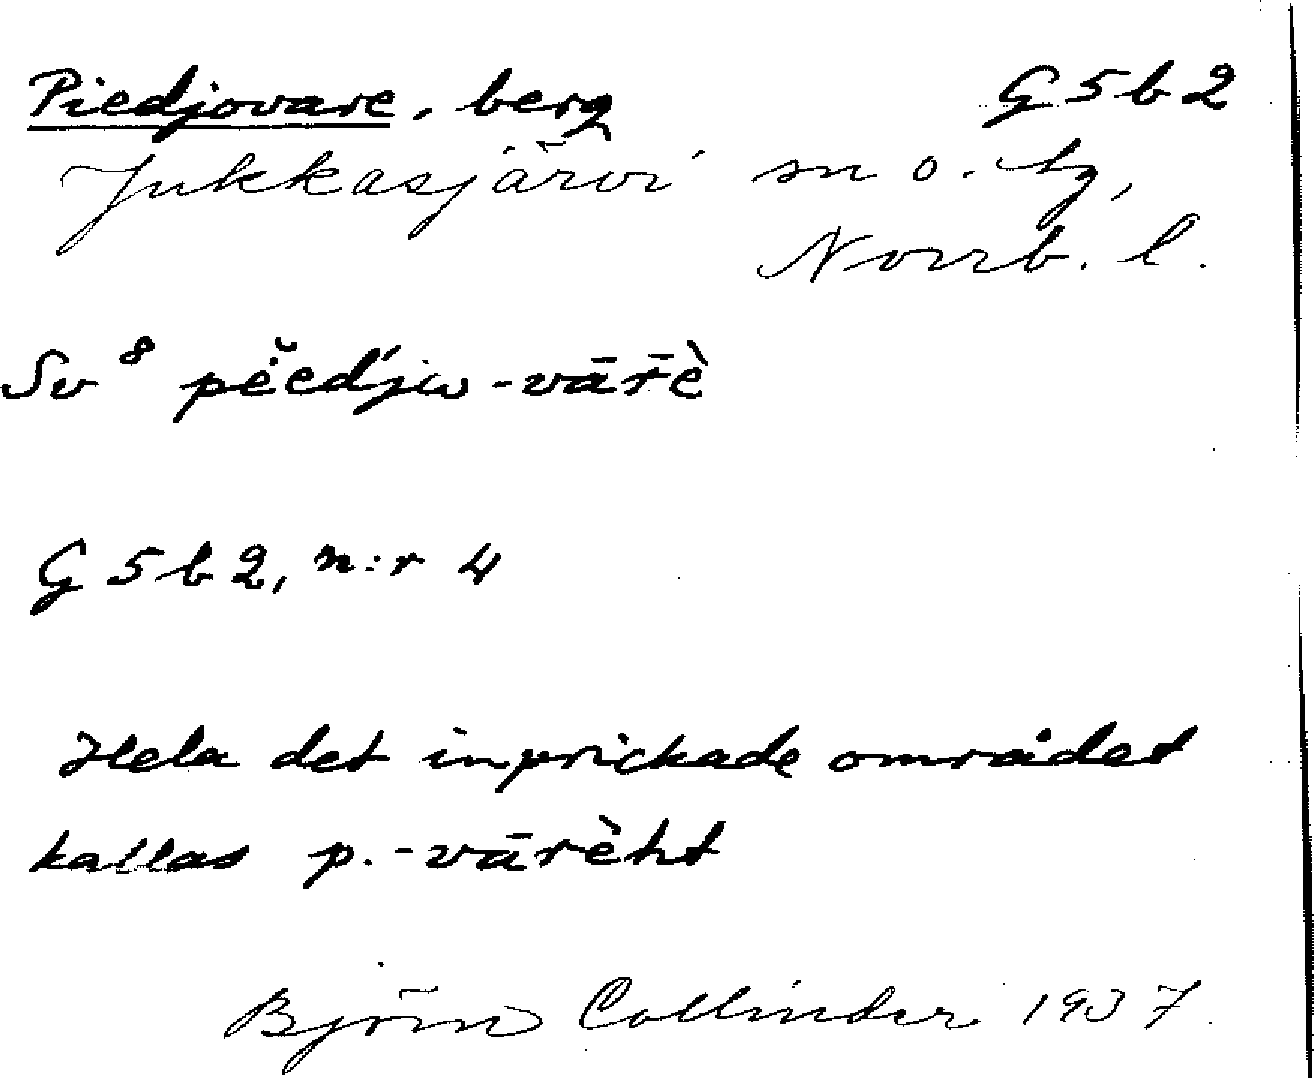 Piedjovare, berg G5b2
Jukkasjärvi sn o. tg,
Norrb. l.
Sv 8 pĕedʹjw-vār̄ὲ
G5b2, n:r 4
Hela det inprickade området
kallas p.-vārèht
Björn Collinder 1937